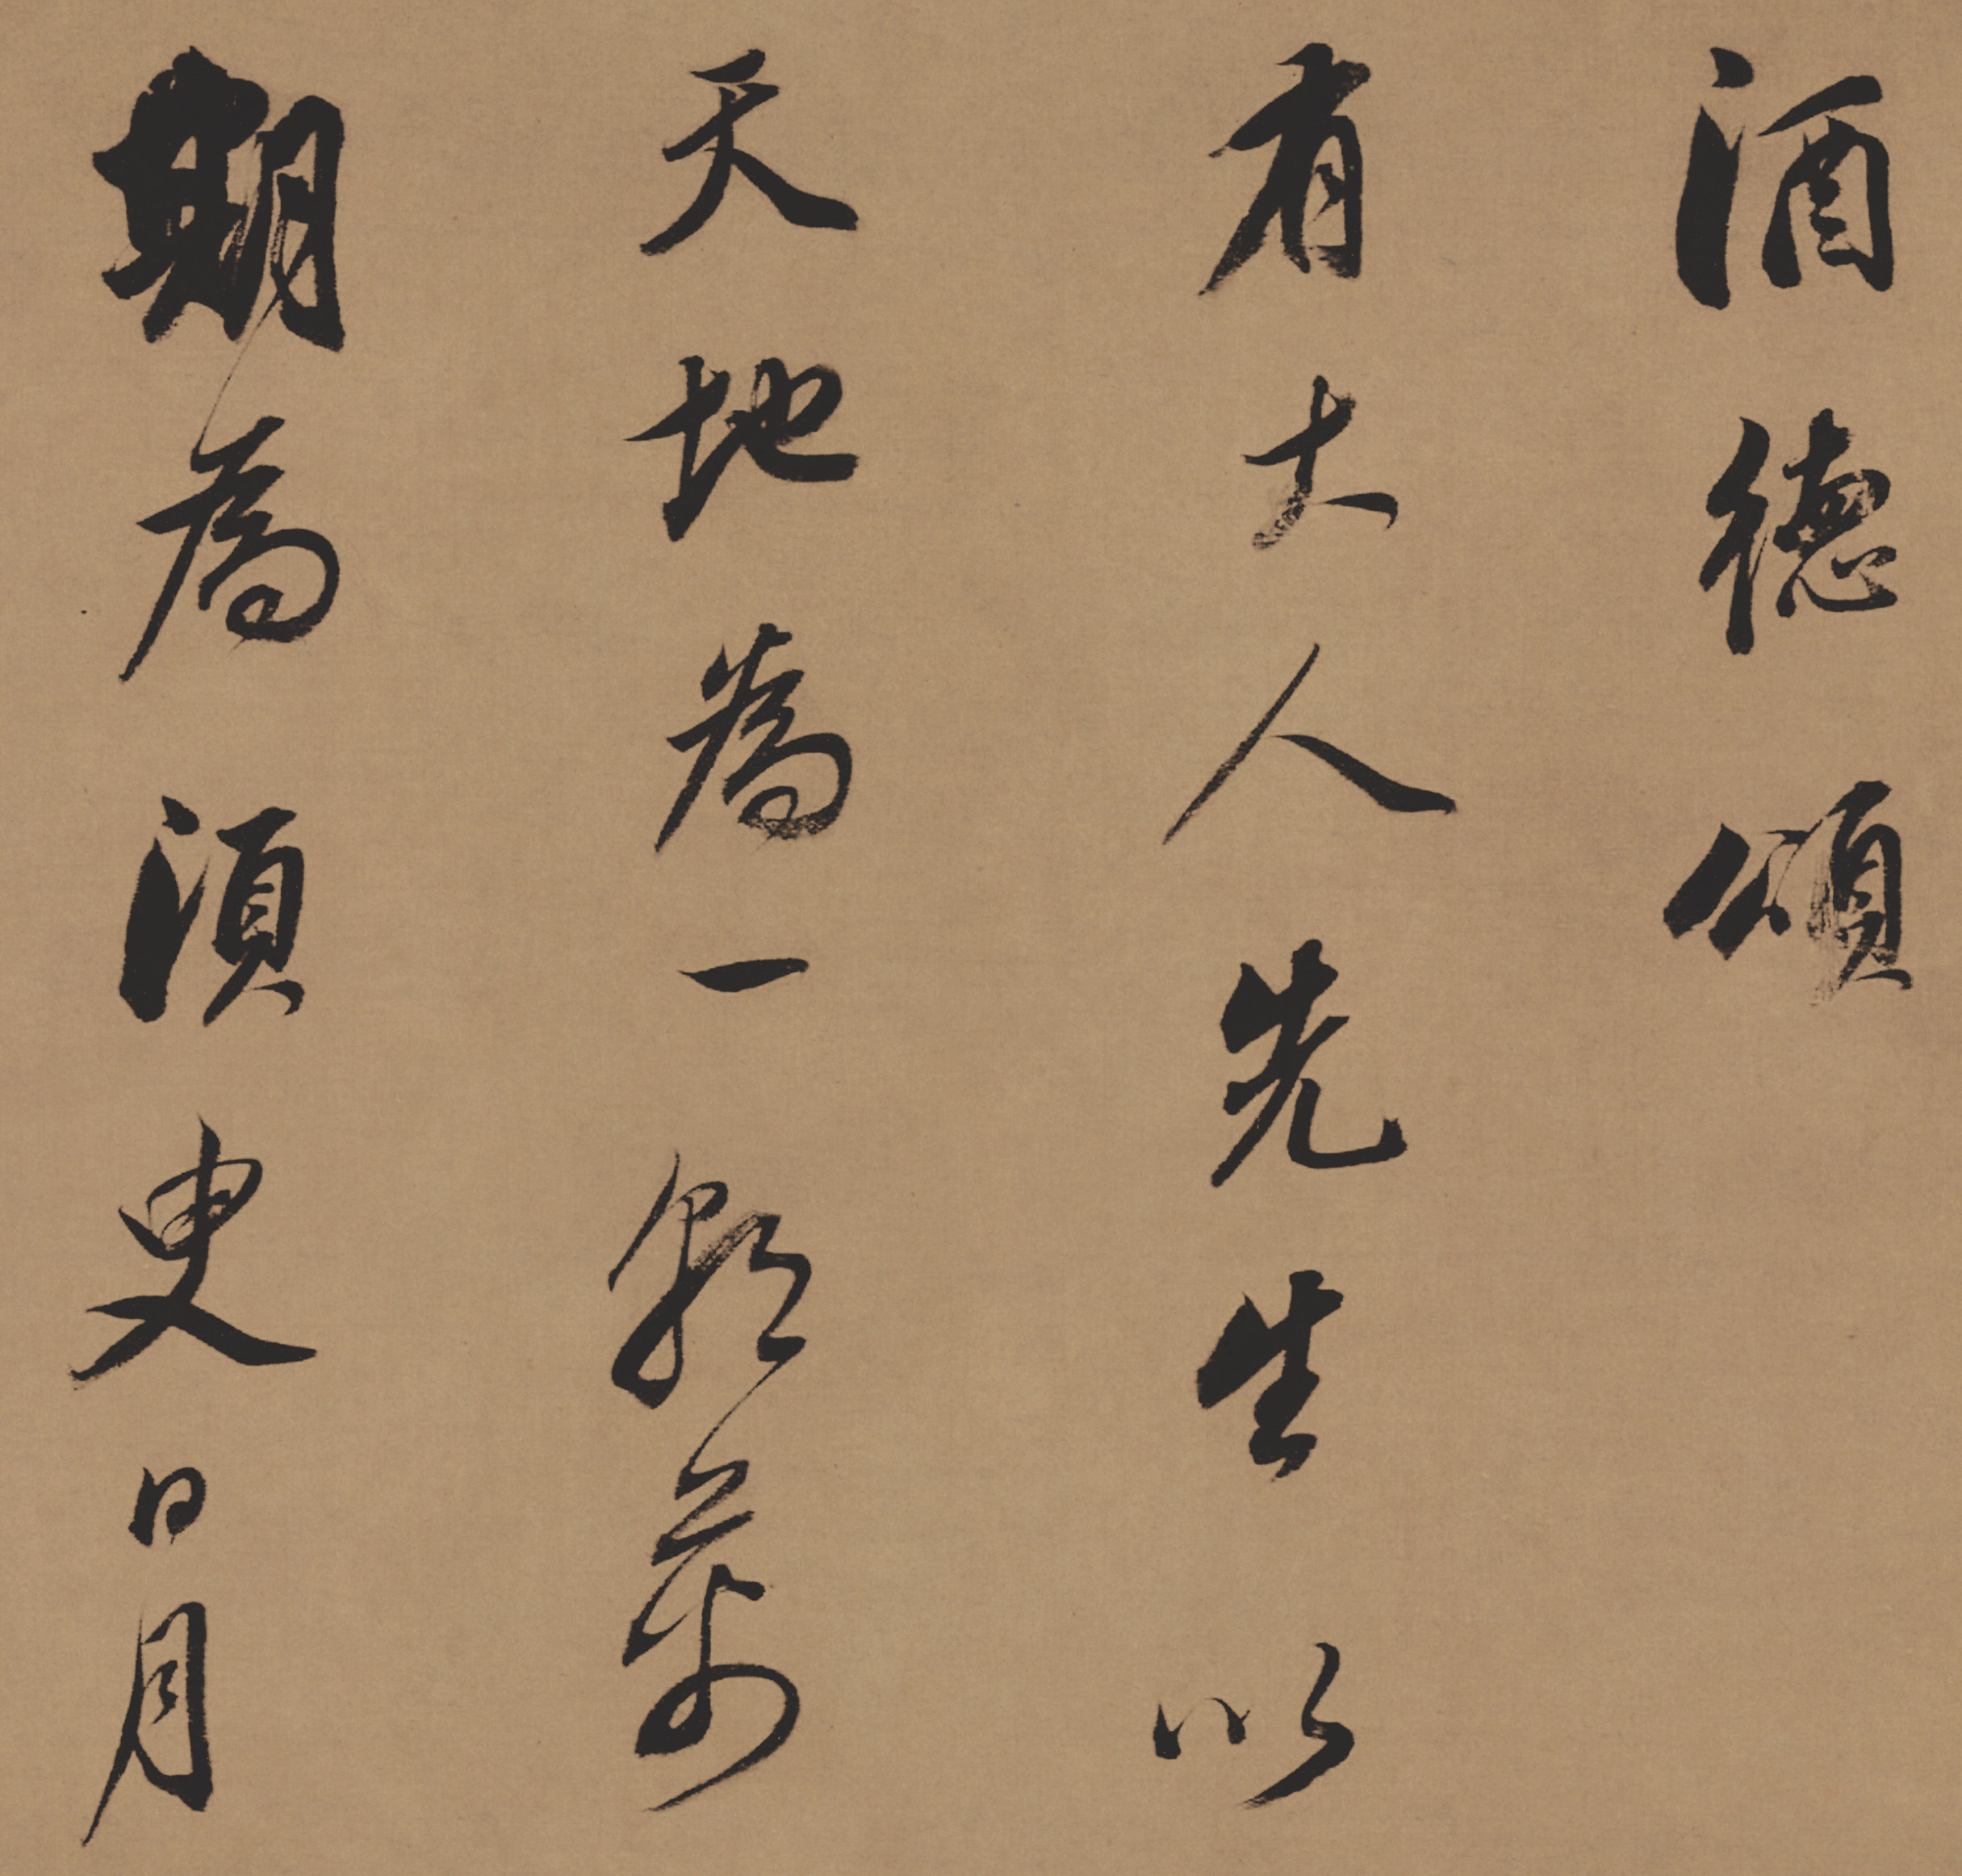 酒德頌
有大人先生以
天地為一朝萬
期為須臾日月